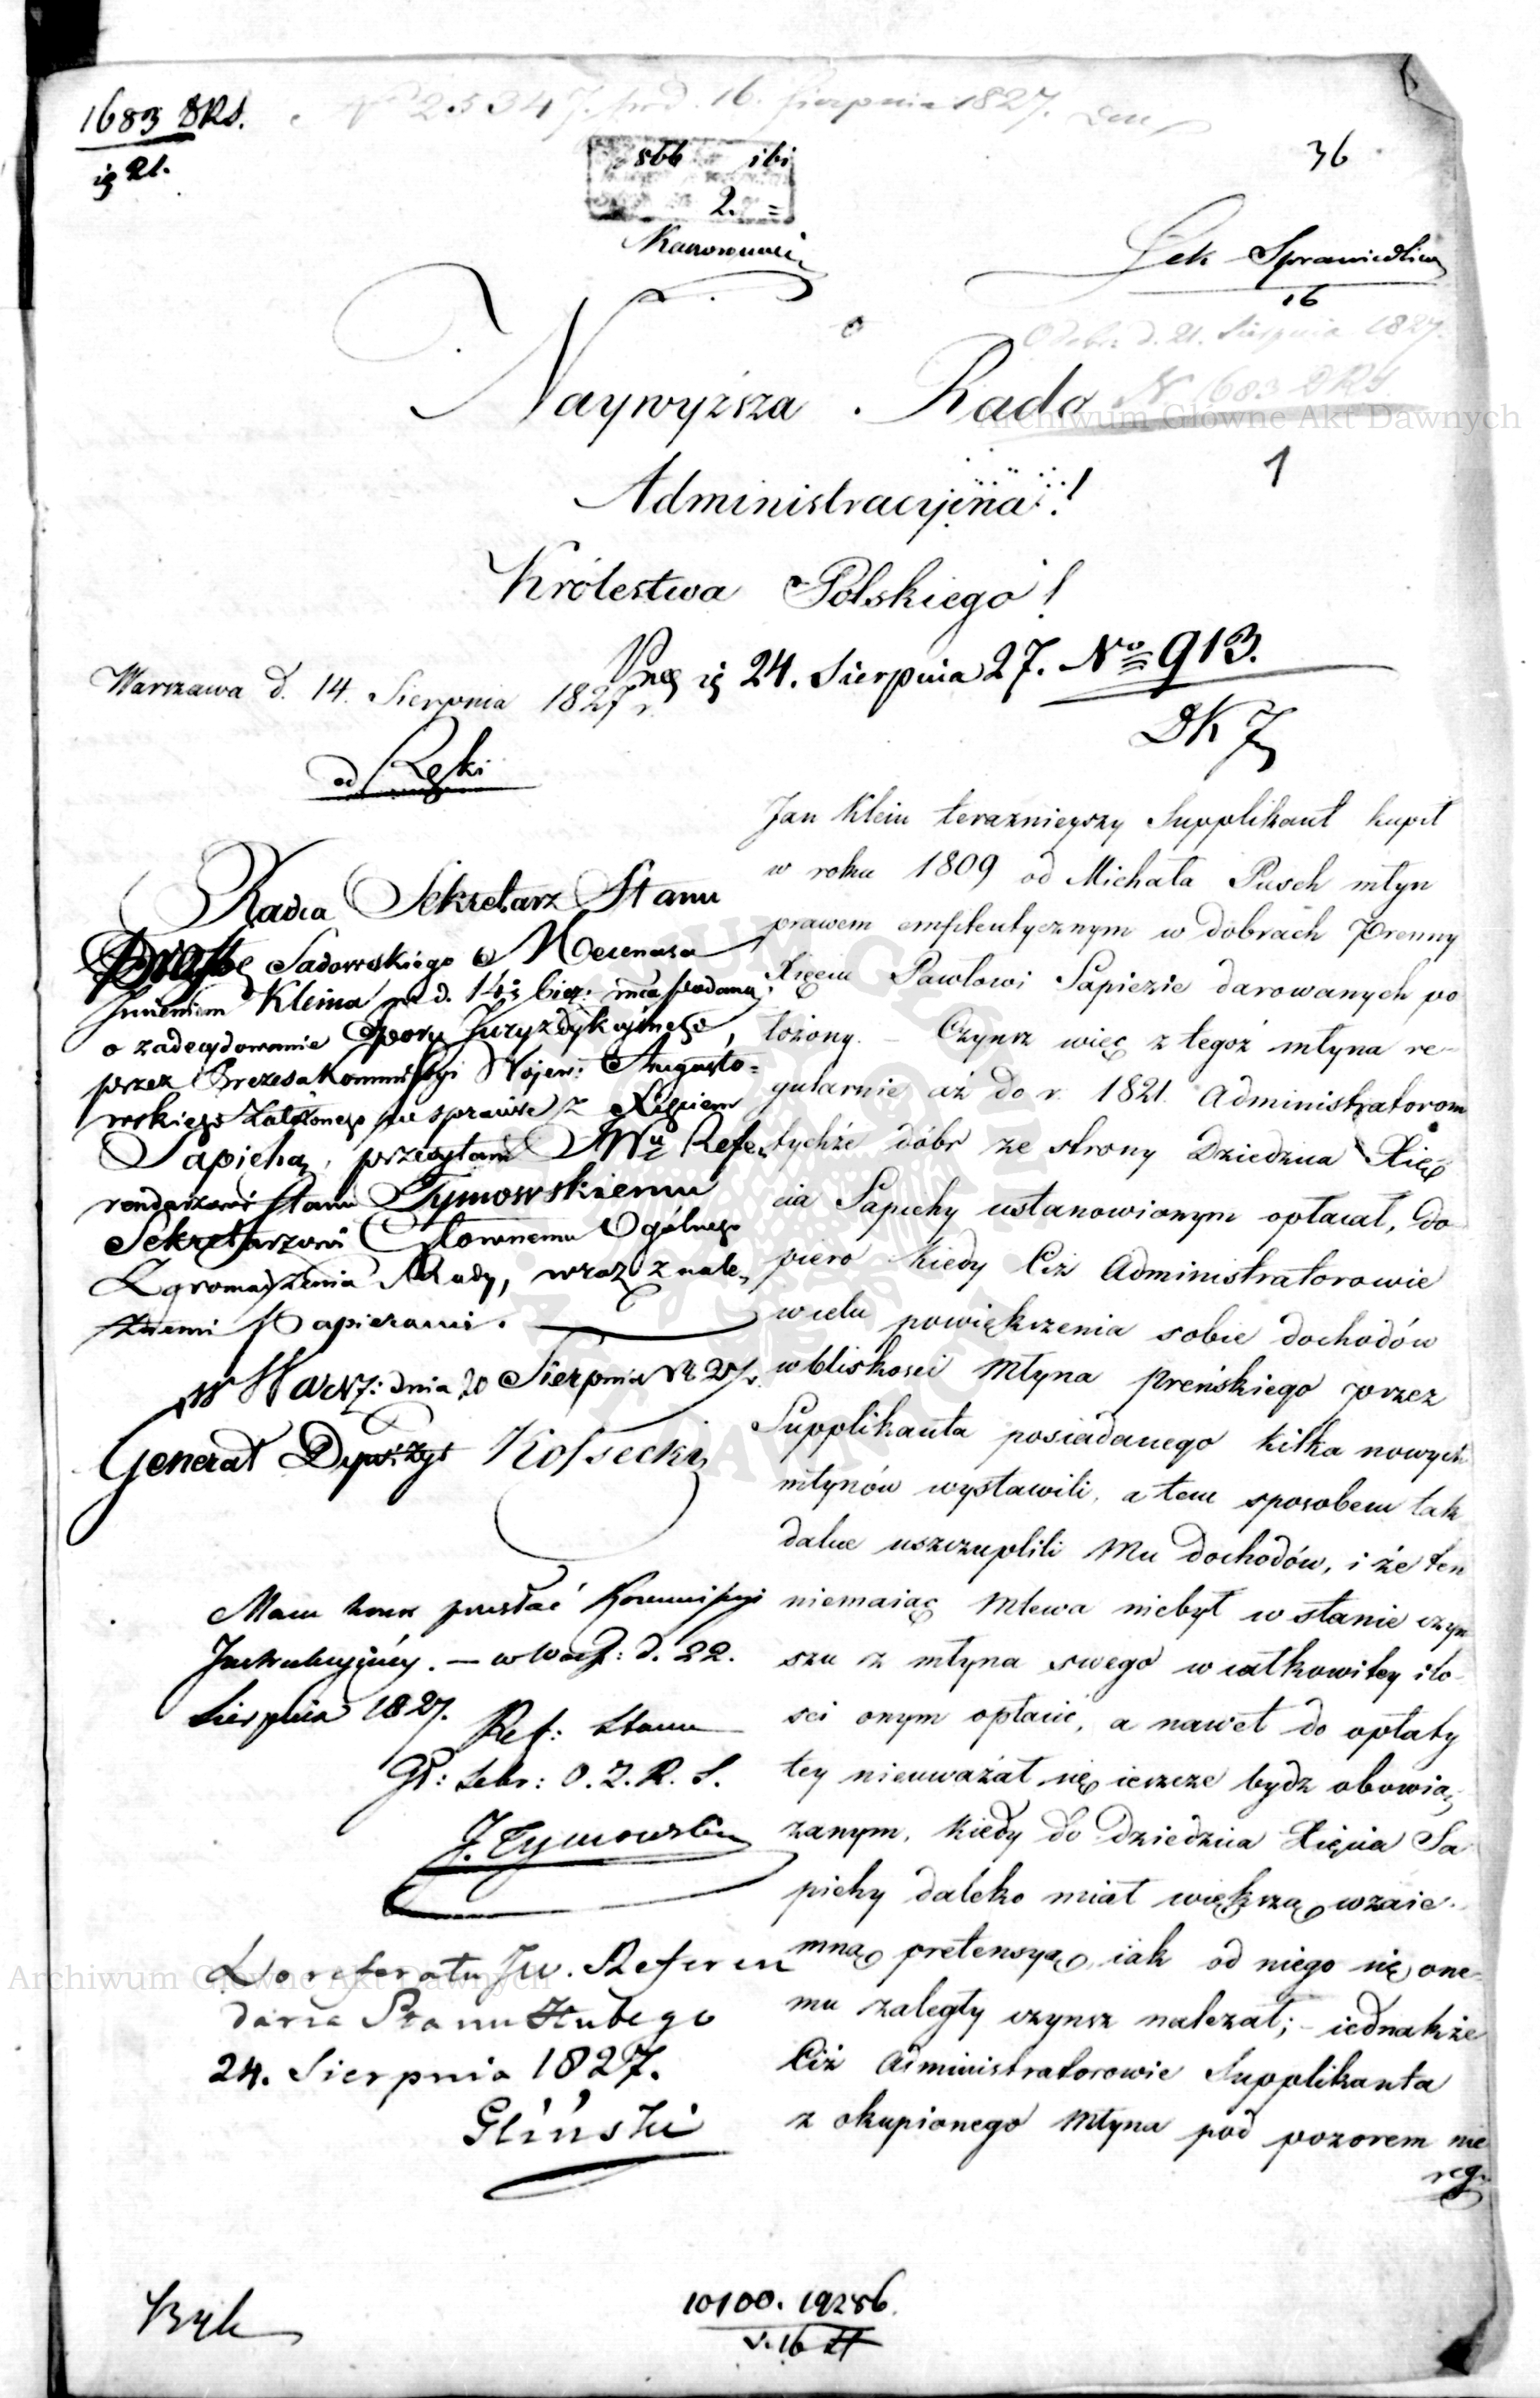 1683 DRS.
21.
N 25347. pod. 16. Sierpnia 1827.
566 ibi
2. =
36
Sek Sprawiedliw
16
Odebr. d. 21. Sierpnia 1827.
N 1683 DRS
Naywyższa Rada
Archiwum Główne Akt Dawnych
1
Administracyina!
Królestwa Polskiego!
24. Sierpnia 27. No 913.
Warszawa d. 14. Sierpnia 1827 r.
od Ręki
Radca Sekretarz Stanu
Prośbę Sadowskiego Mecenasa
Imieniem Kleina pod d. 14 bież: mca podaną,
o zadecydowanie Sporu Juryzdykcyinego,
przez Prezesa Kommissyi Wojew: Augusto=
wskiego założonego w sprawie z Xięciem
Sapiehą, przesyłam JWu Refe=
rendarzowi Stanu Tymowskiemu
Sekretarzowi Głównemu Ogólnego
Zgromadzenia Rady, wraz z nale=
żnemi Papierami.
w Warsz: dnia 20 Sierpnia 1827 r.
Generał Dywizyi Kossecki
Mam honor przesłać Kommissyi
Instrukcyiney. — w Warsz: d. 22.
Sierpnia 1827.
Ref: Stanu
Gł: Sekr: O. Z. R. S.
J. Tymowski
Do referatu JW. Referen
darza Stanu Hubego
24. Sierpnia 1827.
Gliński
Jan Klein teraznieyszy Supplikant kupił
w roku 1809 od Michała Pusch młyn
prawem emfiteutycznym w dobrach Prenny
Xięciu Pawłowi Sapiezie darowanych po
łożony. – Czynsz więc z tegoż młyna re-
gularnie aż do r. 1821. Administratorom
tychże dóbr ze strony Dziedzica Xię
cia Sapiehy ustanowionym opłacał, do
piero kiedy Ciż Administratorowie
w celu powiększenia sobie dochodów
w bliskości Młyna Preńskiego przez
Supplikanta posiadanego kilka nowych
młynów wystawili, a tem sposobem tak
dalece uszczuplili Mu dochodów, i że ten
niemaiąc Mlewa niebył w stanie czyn
szu z młyna swego w całkowitey ilo-
sci onym opłacić, a nawet do opłaty
tey nieuważał się ieszcze bydz obowią-
zanym, kiedy do Dziedzica Xięcia Sa
piehy daleko miał większą wzaie-
mną pretensyą, iak od niego się one-
mu zaległy czynsz należał; – iednakże
Ciż Administratorowie Supplikanta
z okupionego Młyna pod pozorem nie
reg-
Archiwum Główne Akt Dawnych
10100. 19286.